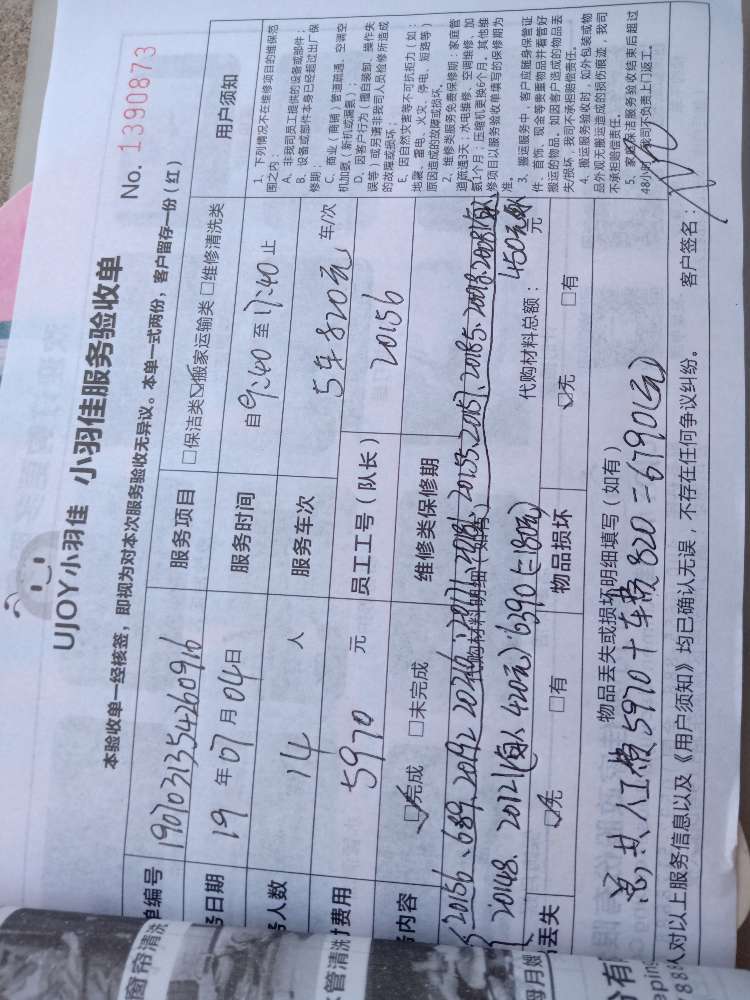 UJOY小羽佳 小羽佳服务验收单
No. 1390873
本验收单一经核签，即视为对本次服务验收无异议。本单一式两份，客户留存一份（红）
单编号 1907031354260916
服务项目 □保洁类 ☑搬家运输类 □维修清洗类
务日期 19 年 07 月 04 日
服务时间 自 9:40 至 17:40 止
务人数 14 人
服务车次 5车820元 车/次
付费用 5970 元
员工工号（队长） 20156
务内容 ☑完成 □未完成
维修类保修期
代购材料明细（如有）
20156、689、20192
20148、20121(每人420元)
代购材料总额： 元
丢失 ☑无 □有
物品损坏 ☑无 □有
物品丢失或损坏明细填写（如有）
总共人工费5970+车费820=6790(元)
人对以上服务信息以及《用户须知》均已确认无误，不存在任何争议纠纷。
客户签名：
用户须知
1、下列情况不在维修项目的维保范
围之内：
A、非我司员工提供的设备或部件；
B、设备或部件本身已经超过出厂保
修期；
C、商业（商铺）管道疏通、空调空
机加氨（新机或漏氨）；
D、因客户行为（擅自装卸、操作失
误等）或另请非我司人员检修所造成
的故障或损坏；
E、因自然灾害等不可抗拒力（如：
地震、雷电、火灾、停电、短路等）
原因造成的故障或损坏。
2、维修类服务免费保修期：家庭管
道疏通3天；水电维修、空调维修、加
氨1个月；压缩机更换6个月。其他维
修项目以服务验收单填写的保修期为
准。
3、搬运服务中，客户应随身保管证
件、首饰、现金等贵重物品并看管好
搬运的物品。如因客户造成的物品丢
失/损坏，我司不承担赔偿责任。
4、搬运服务验收时，如外包装或物
品外观无搬运造成的损伤痕迹，我司
不承担赔偿责任。
5、家庭保洁服务验收结束后超过
48小时，我司不负责上门返工。
窗帘清洗
管清洗